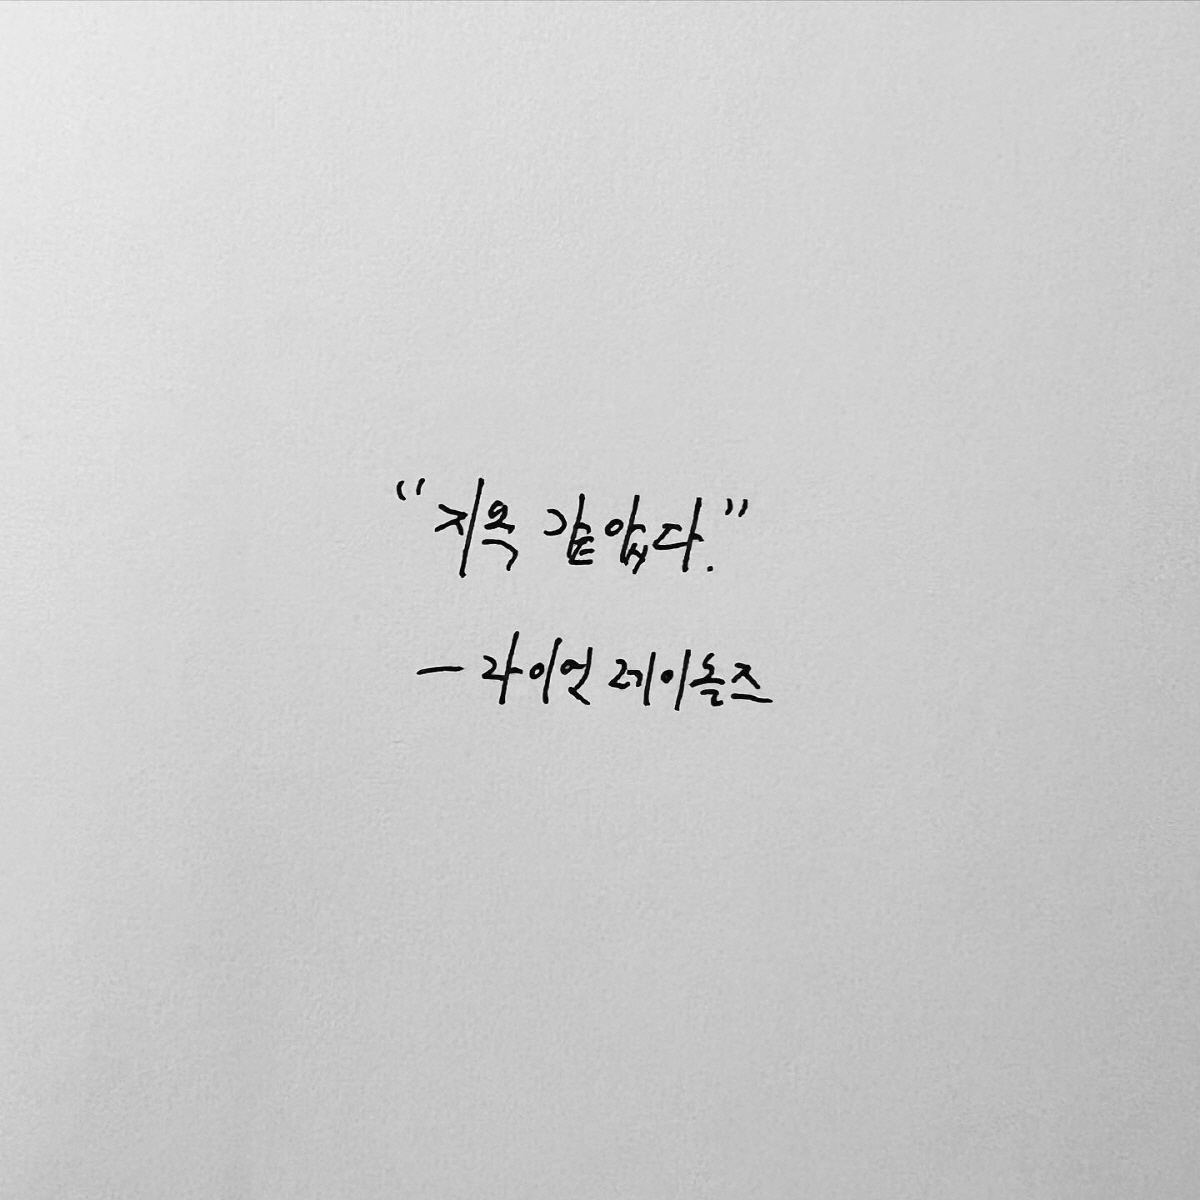 "지옥 같았다."
- 라이언 레이놀즈